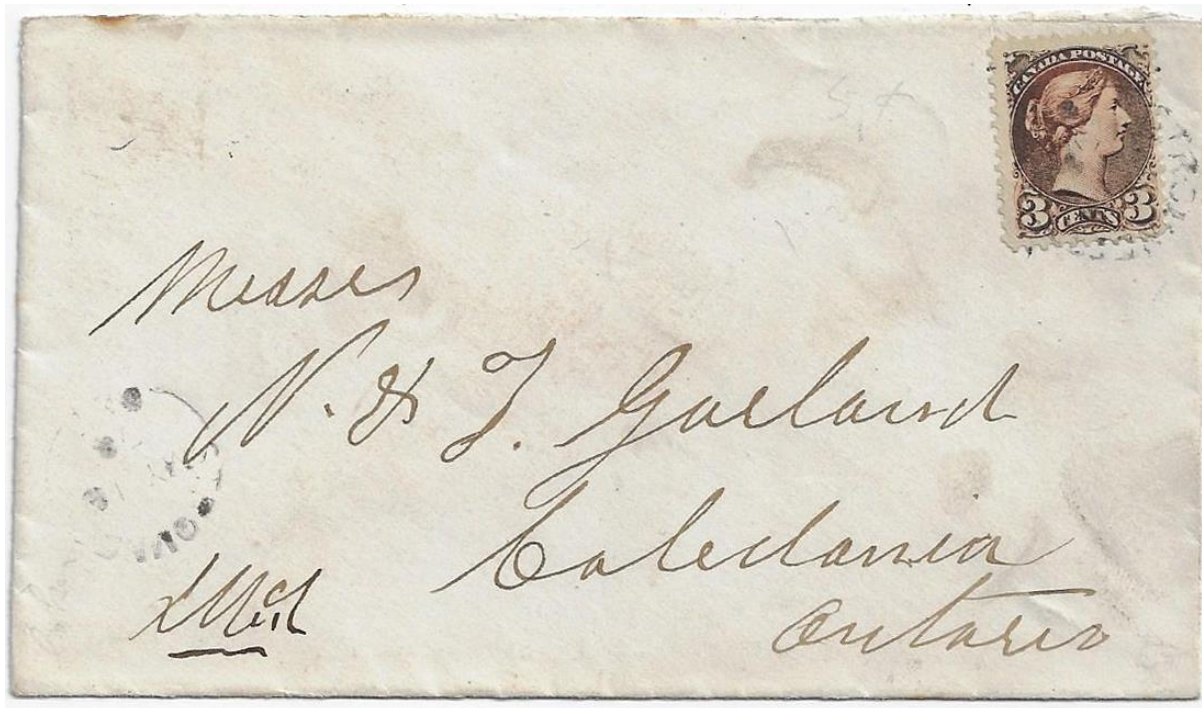 CANADA POSTAGE
3 CENTS 3
Messrs
N. & T. Garland
Caledonia
Ontario